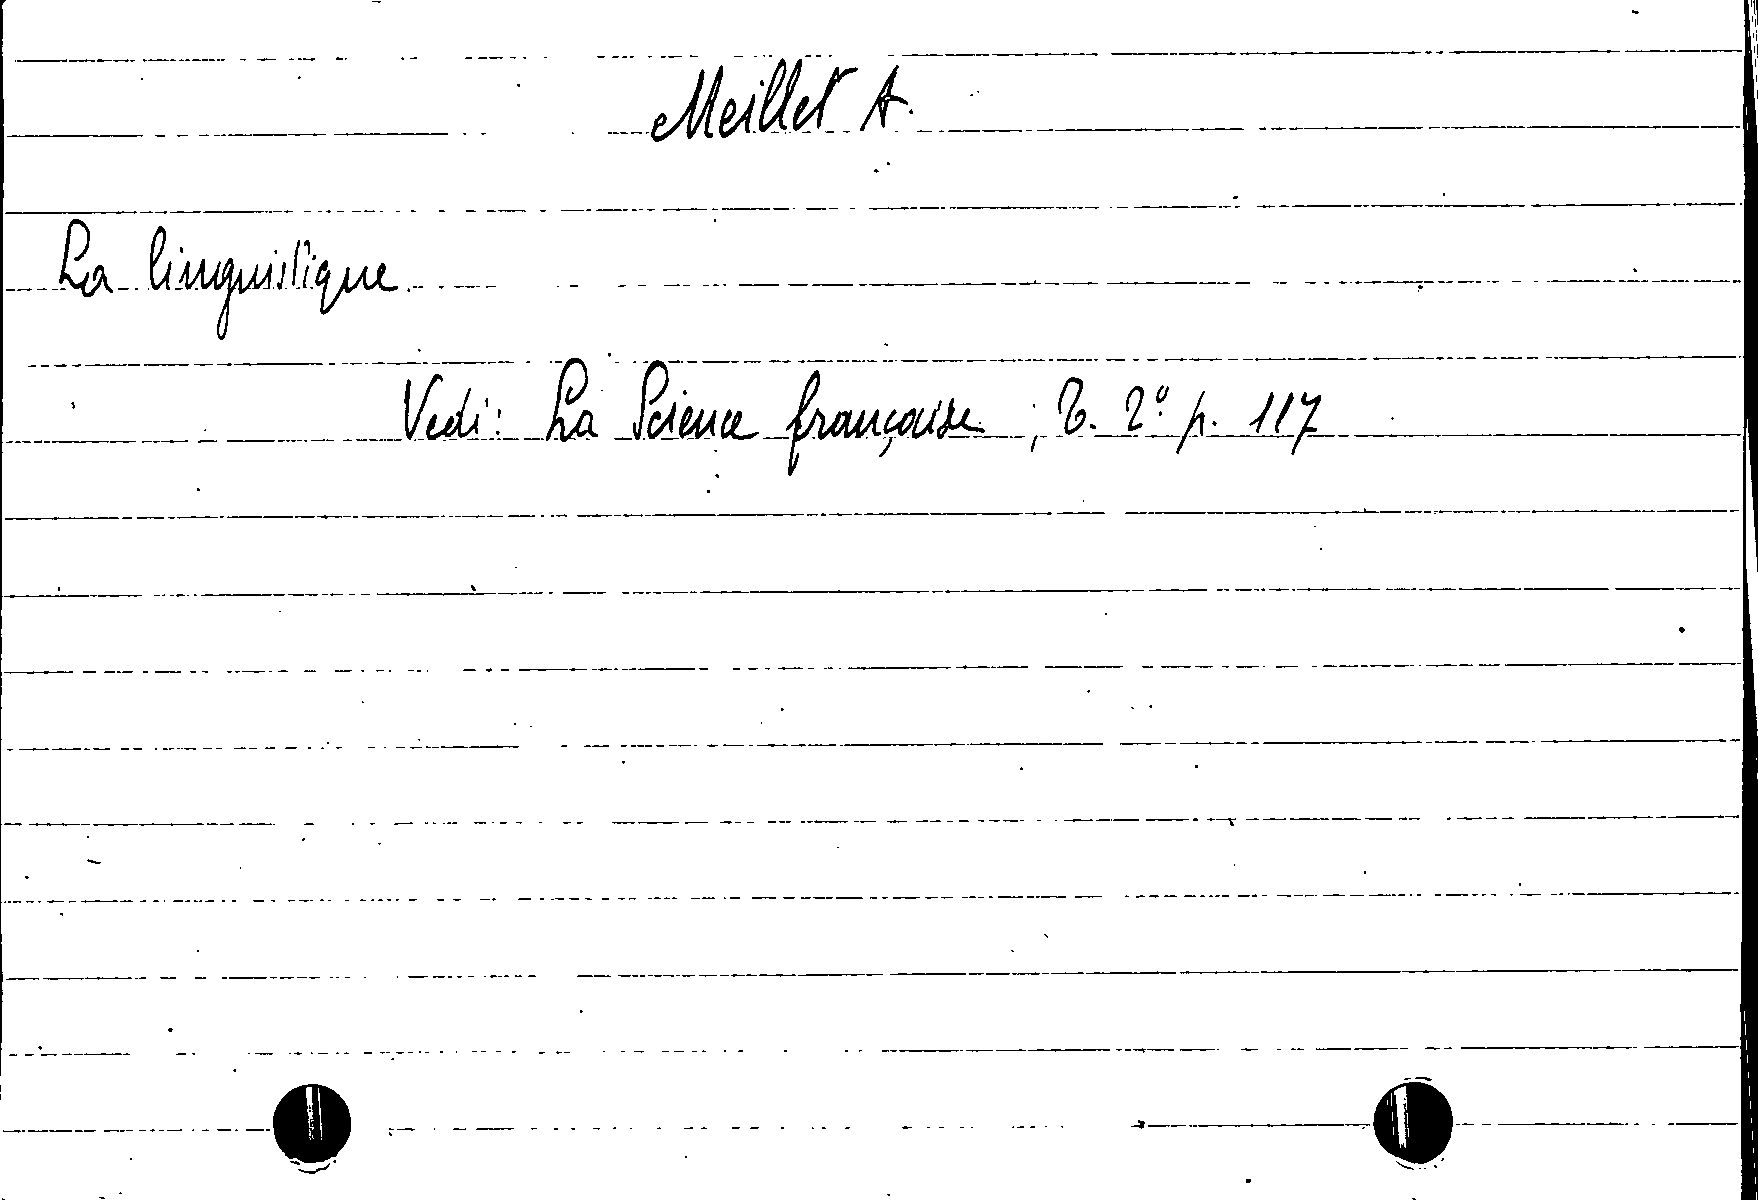 Meillet A.
La linguistique.
Vedi: La Science française ; T. 2º p. 117